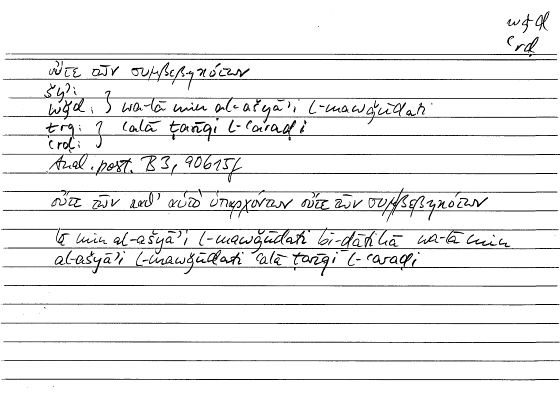 wǧd
ʿrḍ
οὔτε τῶν συμβεβηκότων
šyʾ:
wǧd: } wa-lā min al-ašyāʾi l-mawǧūdati
ṭrq: } ʿalā ṭarīqi l-ʿaraḍi
ʿrḍ:
Anal. post. B3, 90b15f
οὔτε τῶν καθ' αὑτὸ ὑπαρχόντων οὔτε τῶν συμβεβηκότων
lā min al-ašyāʾi l-mawǧūdati bi-ḏātihā wa-lā min
al-ašyāʾi l-mawǧūdati ʿalā ṭarīqi l-ʿaraḍi